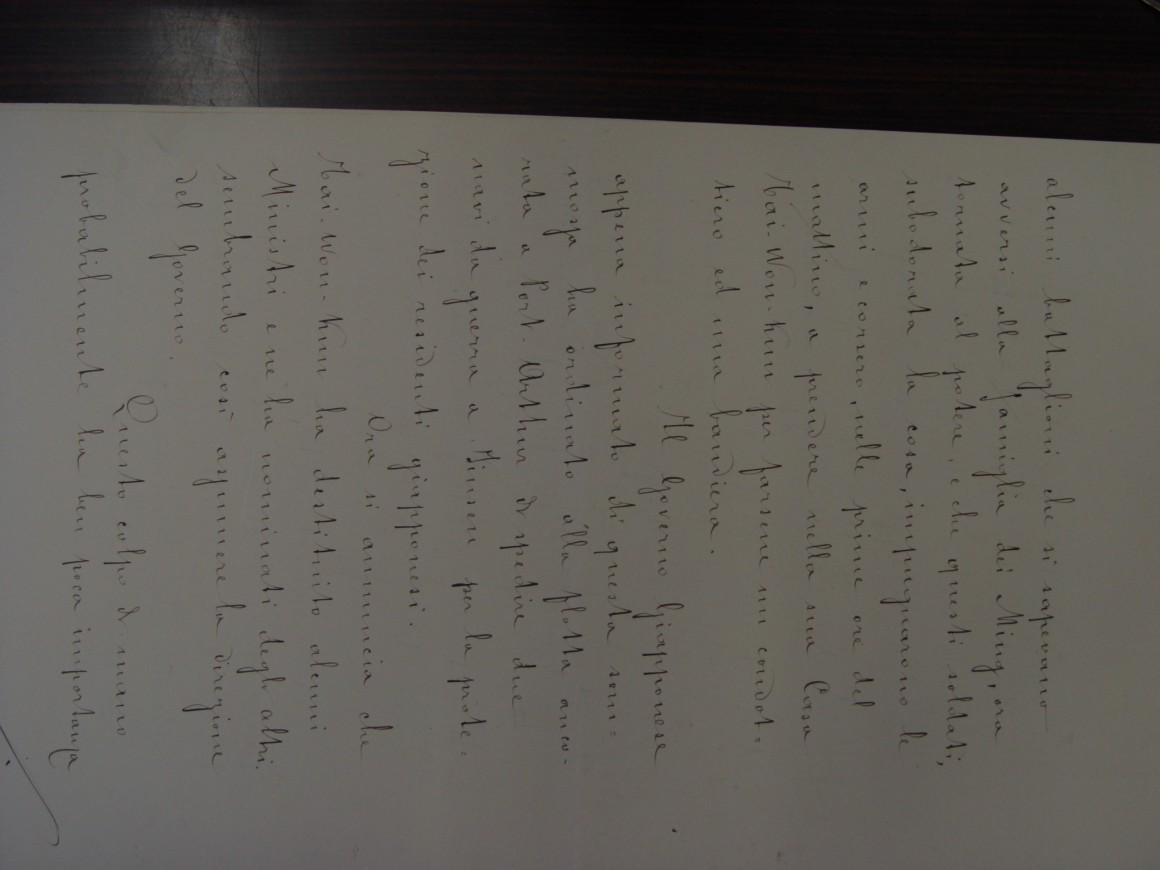 alcuni battaglioni che si sapevano
avversi alla famiglia dei Ming, ora
tornata al potere, e che questi soldati,
subodorata la cosa, impugnarono le
armi e corsero, nelle prime ore del
mattino, a prendere nella sua Casa
Tai-Won-Kun per farsene un condot-
tiero ed una bandiera.
Il Governo Giapponese
appena informato di questa som=
mossa ha ordinato alla flotta anco-
rata a Port-Arthur di spedire due
navi da guerra a Jinsen per la prote-
zione dei residenti giapponesi.
Ora si annuncia che
Tai-Won-Kun ha destituito alcuni
Ministri e ne ha nominati degli altri
sembrando così assumere la direzione
del Governo.
Questo colpo di mano
probabilmente ha ben poca importanza